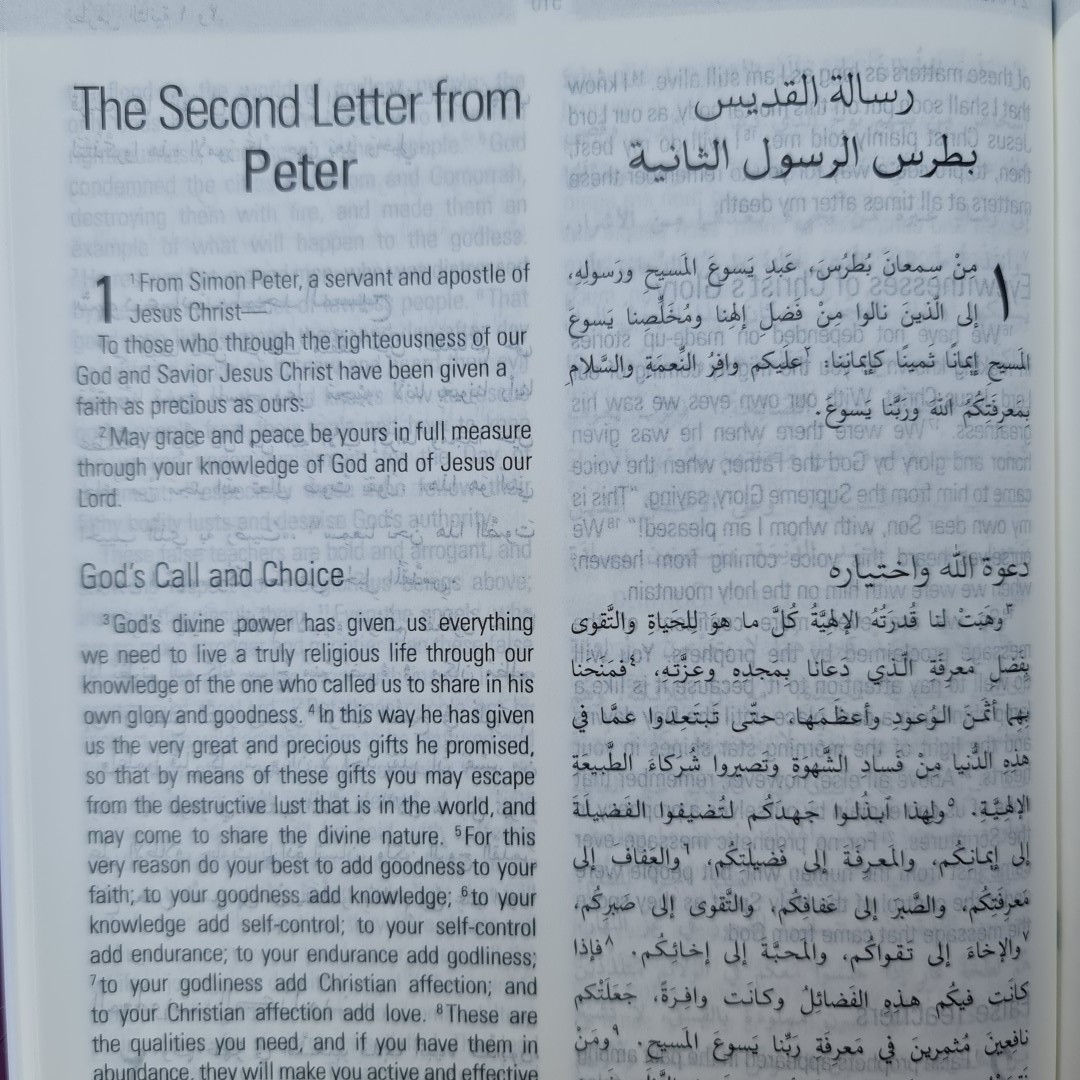 The Second Letter from
Peter
1 ¹From Simon Peter, a servant and apostle of
Jesus Christ—
To those who through the righteousness of our
God and Savior Jesus Christ have been given a
faith as precious as ours:
²May grace and peace be yours in full measure
through your knowledge of God and of Jesus our
Lord.
God's Call and Choice
³God's divine power has given us everything
we need to live a truly religious life through our
knowledge of the one who called us to share in his
own glory and goodness. ⁴In this way he has given
us the very great and precious gifts he promised,
so that by means of these gifts you may escape
from the destructive lust that is in the world, and
may come to share the divine nature. ⁵For this
very reason do your best to add goodness to your
faith; to your goodness add knowledge; ⁶to your
knowledge add self-control; to your self-control
add endurance; to your endurance add godliness;
⁷to your godliness add Christian affection; and
to your Christian affection add love. ⁸These are
the qualities you need, and if you have them in
abundance, they will make you active and effective
رسالة القديس
بطرس الرسول الثانية
١ مِنْ سمعانَ بُطرُسَ، عَبدِ يَسوعَ المَسيحِ ورَسولِهِ،
إلى الَّذينَ نالوا مِنْ فَضلِ إلهِنا ومُخَلِّصِنا يَسوعَ
المَسيحِ إيمانًا ثَمينًا كإيمانِنا: ٢عليكم وافِرُ النِّعمَةِ والسَّلامِ
بِمَعرِفَتِكُمُ اللهَ ورَبَّنا يَسوعَ.
دعوة الله واختياره
٣وهَبَتْ لنا قُدرَتُهُ الإلهِيَّةُ كُلَّ ما هوَ لِلحَياةِ والتَّقوى
بِفَضلِ مَعرِفَةِ الَّذي دَعانا بِمَجدِهِ وعِزَّتِهِ، ٤فمَنَحَنا
بِهِما أثمَنَ الوُعودِ وأعظَمَها، حتّى تَبتَعِدوا عَمَّا في
هذِهِ الدُّنيا مِنْ فَسادِ الشَّهوَةِ وتَصيروا شُرَكاءَ الطَّبيعَةِ
الإلهِيَّةِ. ٥ولِهذا اَبذُلوا جَهدَكُم لتُضيفوا الفَضيلَةَ
إلى إيمانِكُم، والمَعرِفَةَ إلى فَضيلَتِكُم، ٦والعَفافَ إلى
مَعرِفَتِكُم، والصَّبرَ إلى عَفافِكُم، والتَّقوى إلى صَبرِكُم،
٧والإخاءَ إلى تَقواكُم، والمَحبَّةَ إلى إخائِكُم. ٨فإذا
كانَت فيكُم هذِهِ الفَضائِلُ وكانَت وافِرَةً، جَعَلَتْكُم
نافِعينَ مُثمِرينَ في مَعرِفَةِ رَبِّنا يَسوعَ المَسيحِ. ٩ومَنْ